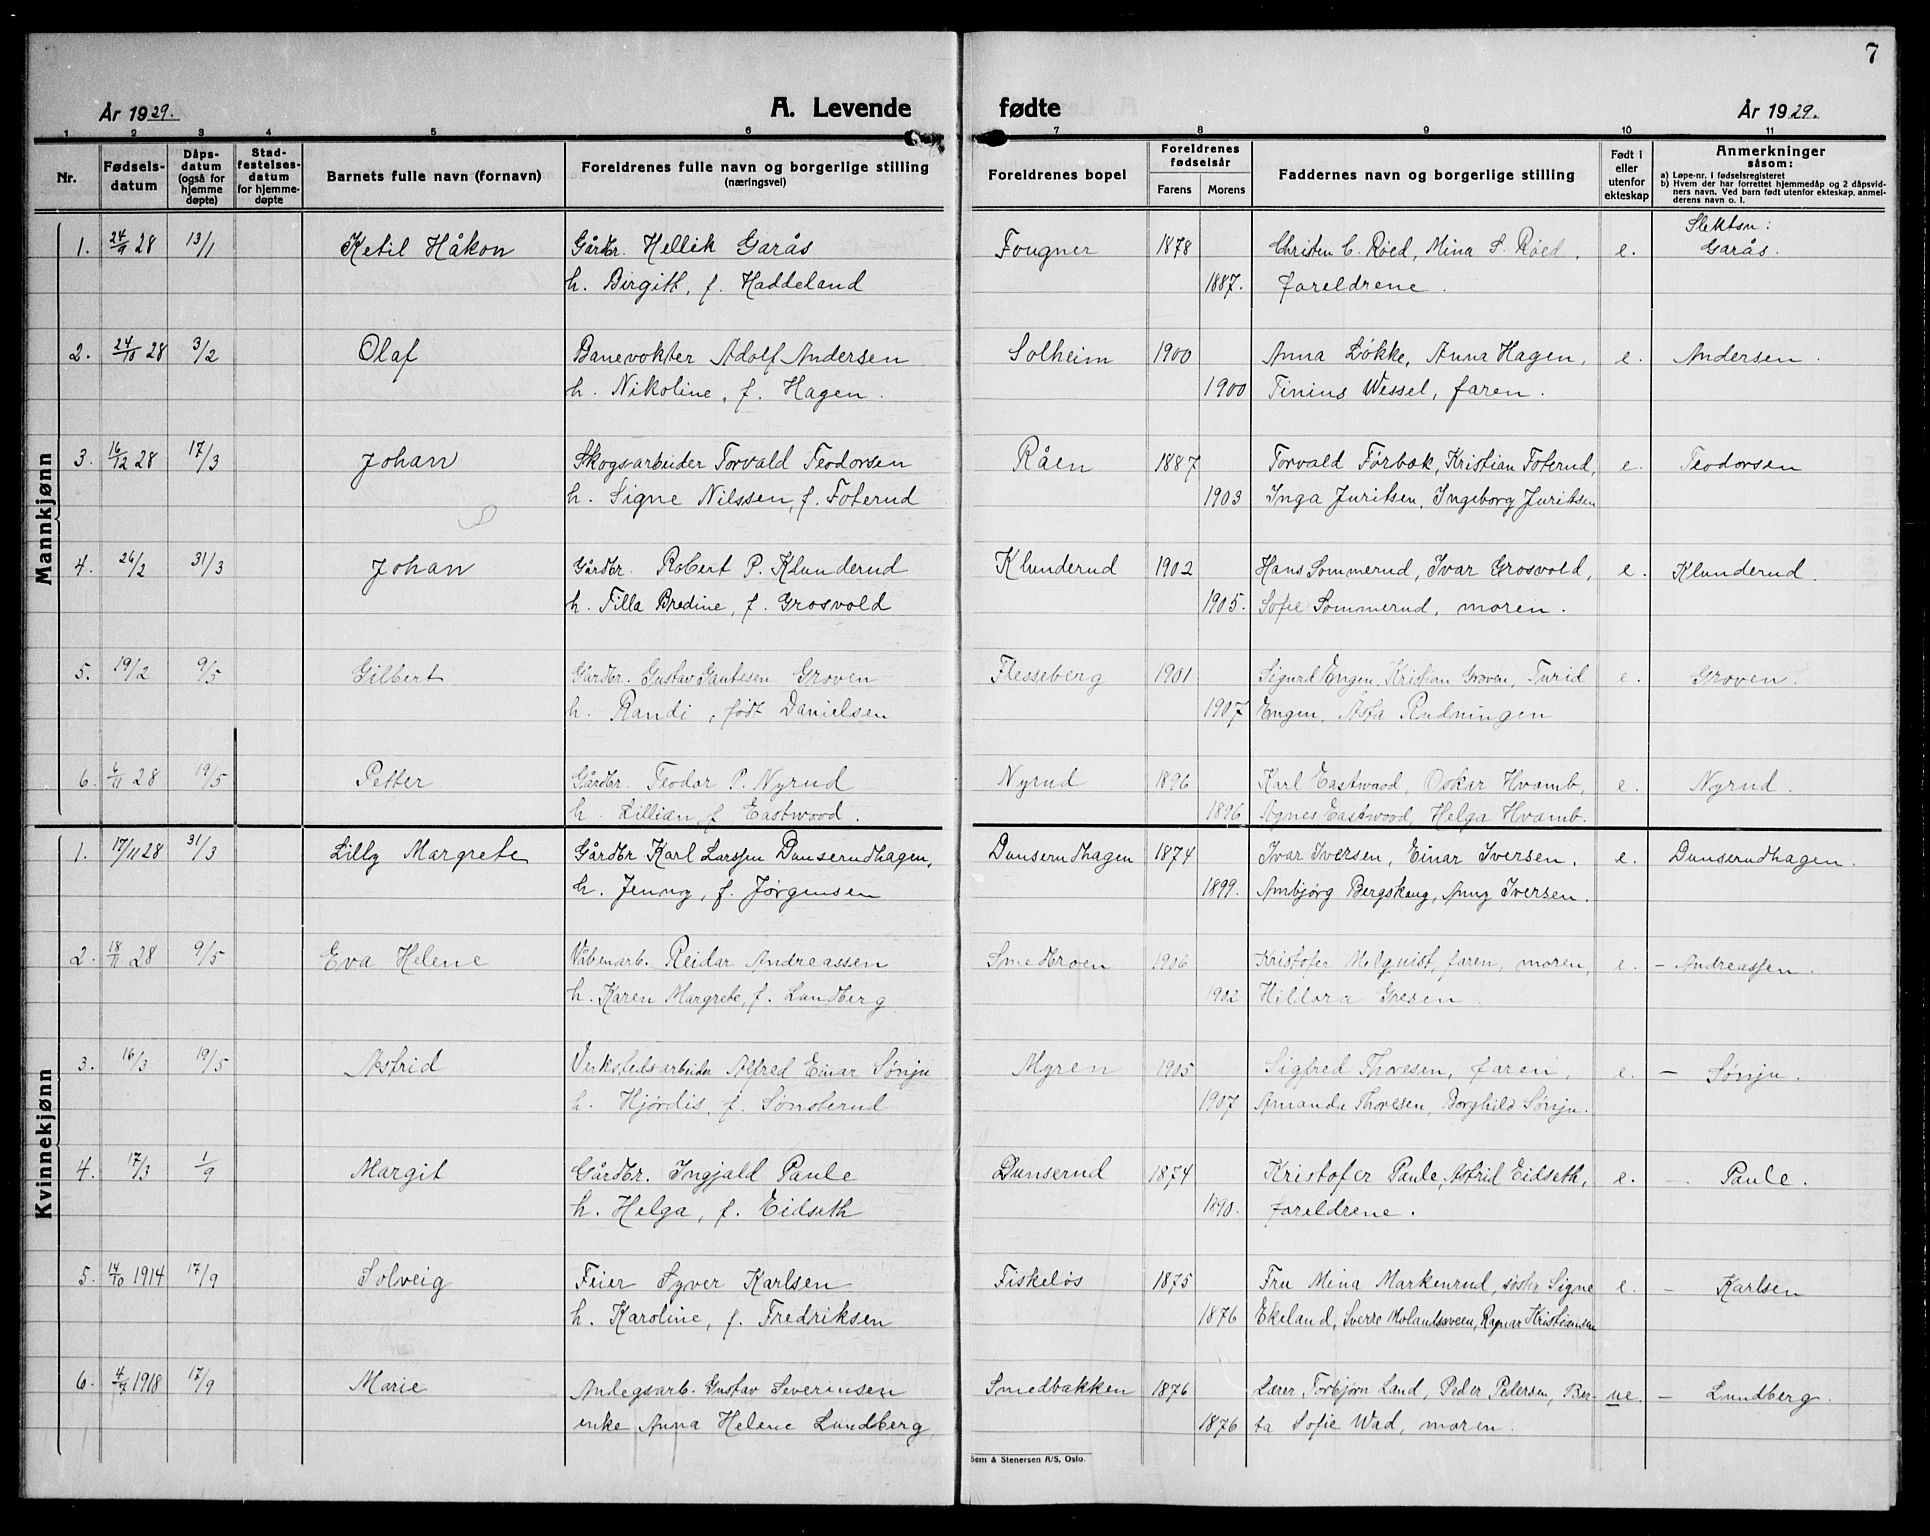 7
År 1929.
A. Levende fødte
År 1929.
1 2 3 4 5 6 7 8 9 10 11
Nr.
Fødsels-
datum
Dåps-
datum
(også for
hjemme
døpte)
Stad-
festelses-
datum
for hjemme-
døpte
Barnets fulle navn (fornavn)
Foreldrenes fulle navn og borgerlige stilling
(næringsvei)
Foreldrenes bopel
Foreldrenes
fødselsår
Farens Morens
Faddernes navn og borgerlige stilling
Født i
eller
utenfor
ekteskap
Anmerkninger
såsom:
a) Løpe-nr. i fødselsregisteret
b) Hvem der har forrettet hjemmedåp og 2 dåpsvid-
ners navn. Ved barn født utenfor ekteskap, anmel-
derens navn o. l.
Mannkjønn
Slektsn:
1. 24/9 28 13/1 Ketil Håkon Gårdbr. Hellik Garås Fougner 1878 Christen C. Røed, Mina S. Røed, e. Garås.
h. Birgith, f. Haddeland 1887. foreldrene.
2. 24/10 28 3/2 Olaf Banevokter Adolf Andersen Solheim 1900 Anna Løkke, Anna Hagen, e. Andersen.
h. Nikoline, f. Hagen. 1900 Tinius Wessel, faren.
3. 16/12 28 17/3 Johan Skogsarbeider Torvald Teodorsen Råen 1887 Torvald Førbæk, Kristian Foterud, e. Teodorsen
h. Signe Nilssen, f. Foterud 1903 Inga Juritsen, Ingeborg Juritsen
4. 26/2 31/3 Johan Gårdbr. Robert P. Klunderud Klunderud 1902 Hans Sommerud, Ivar Grosvold, e. Klunderud.
h. Tilla Bredine, f. Grosvold 1905. Sofie Sommerud, moren.
5. 19/2 9/5 Gilbert Gårdbr. Gustav Gautesen Groven Flesseberg 1901 Sigurd Engen, Kristian Groven, Turid e. Groven.
h. Randi, født Danielsen 1907 Engen, Åsta Rudningen
6. 6/11 28 19/5 Petter Gårdbr. Teodor P. Nyrud Nyrud 1896 Karl Eastwood, Oskar Hvamb, e. Nyrud.
h. Lillian, f. Eastwood. 1896 Agnes Eastwood, Helga Hvamb.
Kvinnekjønn
1. 17/11 28 31/3 Lilly Margrete Gårdbr Karl Larssen Dunserudhagen, Dunserudhagen 1874 Ivar Iversen, Einar Iversen, e. Dunserudhagen.
h. Jenny, f. Jørgensen 1899. Ambjørg Bergskaug, Anny Iversen.
2. 18/11 28 9/5 Eva Helene Våbenarb. Reidar Andreassen Smedbroen 1906 Kristofer Melquist, faren, moren, e. – Andreassen.
h. Karen Margrete, f. Lundberg 1902 Hillora Gresen.
3. 16/3 19/5 Astrid Verkstedsarbeider Alfred Einar Sønju Myren 1905 Sigfred Thoresen, faren, e. – Sønju.
h. Hjørdis, f. Sønsterud 1907 Amanda Thoresen, Borghild Sønju.
4. 17/3 1/9 Margit Gårdbr. Ingjald Paule Dunserud 1874 Kristofer Paule, Astrid Eidseth, e. – Paule.
h. Helga, f. Eidseth 1890. foreldrene.
5. 14/10 1914 17/9 Solveig Feier Syver Karlsen Fiskeløs 1875 Fru Mina Markenrud, søster Signe e. – Karlsen
h. Karoline, f. Fredriksen 1876 Ekeland, Sverre Molandsveen, Ragnar Kristiansen
6. 4/7 1918 17/9 Marie Anlegsarb. Gustav Severinsen Smedbakken 1876 Lærer Torbjørn Land, Peder Petersen, Ber- ue. – Lundberg.
enke Anna Helene Lundberg 1876 ta Sofie Wad, moren.
Sem & Stenersen A/S, Oslo.